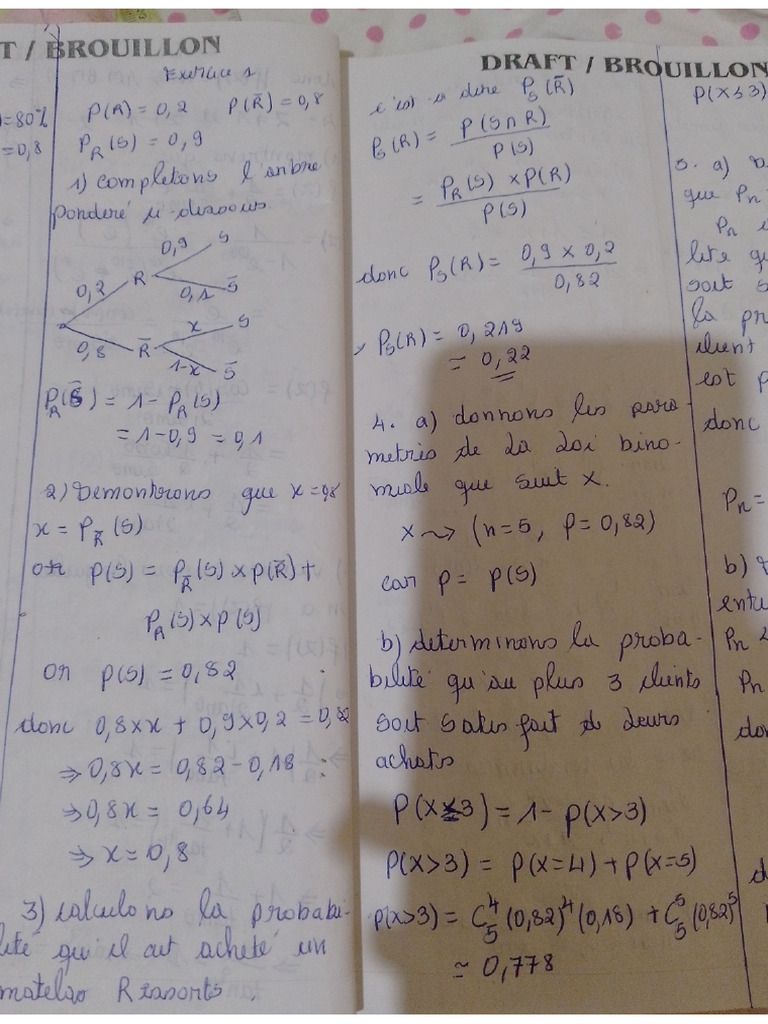 T / BROUILLON
Exercice 1
=80%
=0,8
P(R) = 0,2 P(R̄) = 0,8
P_R(S) = 0,9
1) completons l'arbre
ponderé ci-dessous
0,9 S
R
0,2 0,1 S̄
x S
0,8 R̄
1-x S̄
P_R(S̄) = 1 - P_R(S)
= 1 - 0,9 = 0,1
2) Demontrons que x = 0,8
x = P_R̄(S)
or P(S) = P_R̄(S) × P(R̄) +
P_R(S) × P(S)
or P(S) = 0,82
donc 0,8 × x + 0,9 × 0,2 = 0,82
⇒ 0,8x = 0,82 - 0,18
⇒ 0,8x = 0,64
⇒ x = 0,8
3) calculons la probabi-
lité qu'il ait acheté un
matelas Ressorts.
DRAFT / BROUILLON
c'est a dire P_S(R̄)
P_S(R) = P(S∩R) / P(S)
= P_R(S) × P(R) / P(S)
donc P_S(R) = 0,9 × 0,2 / 0,82
P_S(R) = 0,219
≃ 0,22
4. a) donnons les para-
metres de la loi bino-
miale que suit X.
X ⇝ (n=5, P=0,82)
car p = P(S)
b) determinons la proba-
bilité qu'au plus 3 clients
soit satisfait de leurs
achats
P(X≤3) = 1 - P(X>3)
P(X>3) = P(X=4) + P(X=5)
P(X>3) = C₅⁴ (0,82)⁴ (0,18) + C₅⁵ (0,82)⁵
≃ 0,778
P(X≤3)
5. a)
que Pn
Pn
lité qu
soit s
la pr
client
est p
donc
Pn =
b)
entu
Pn
Pn
don